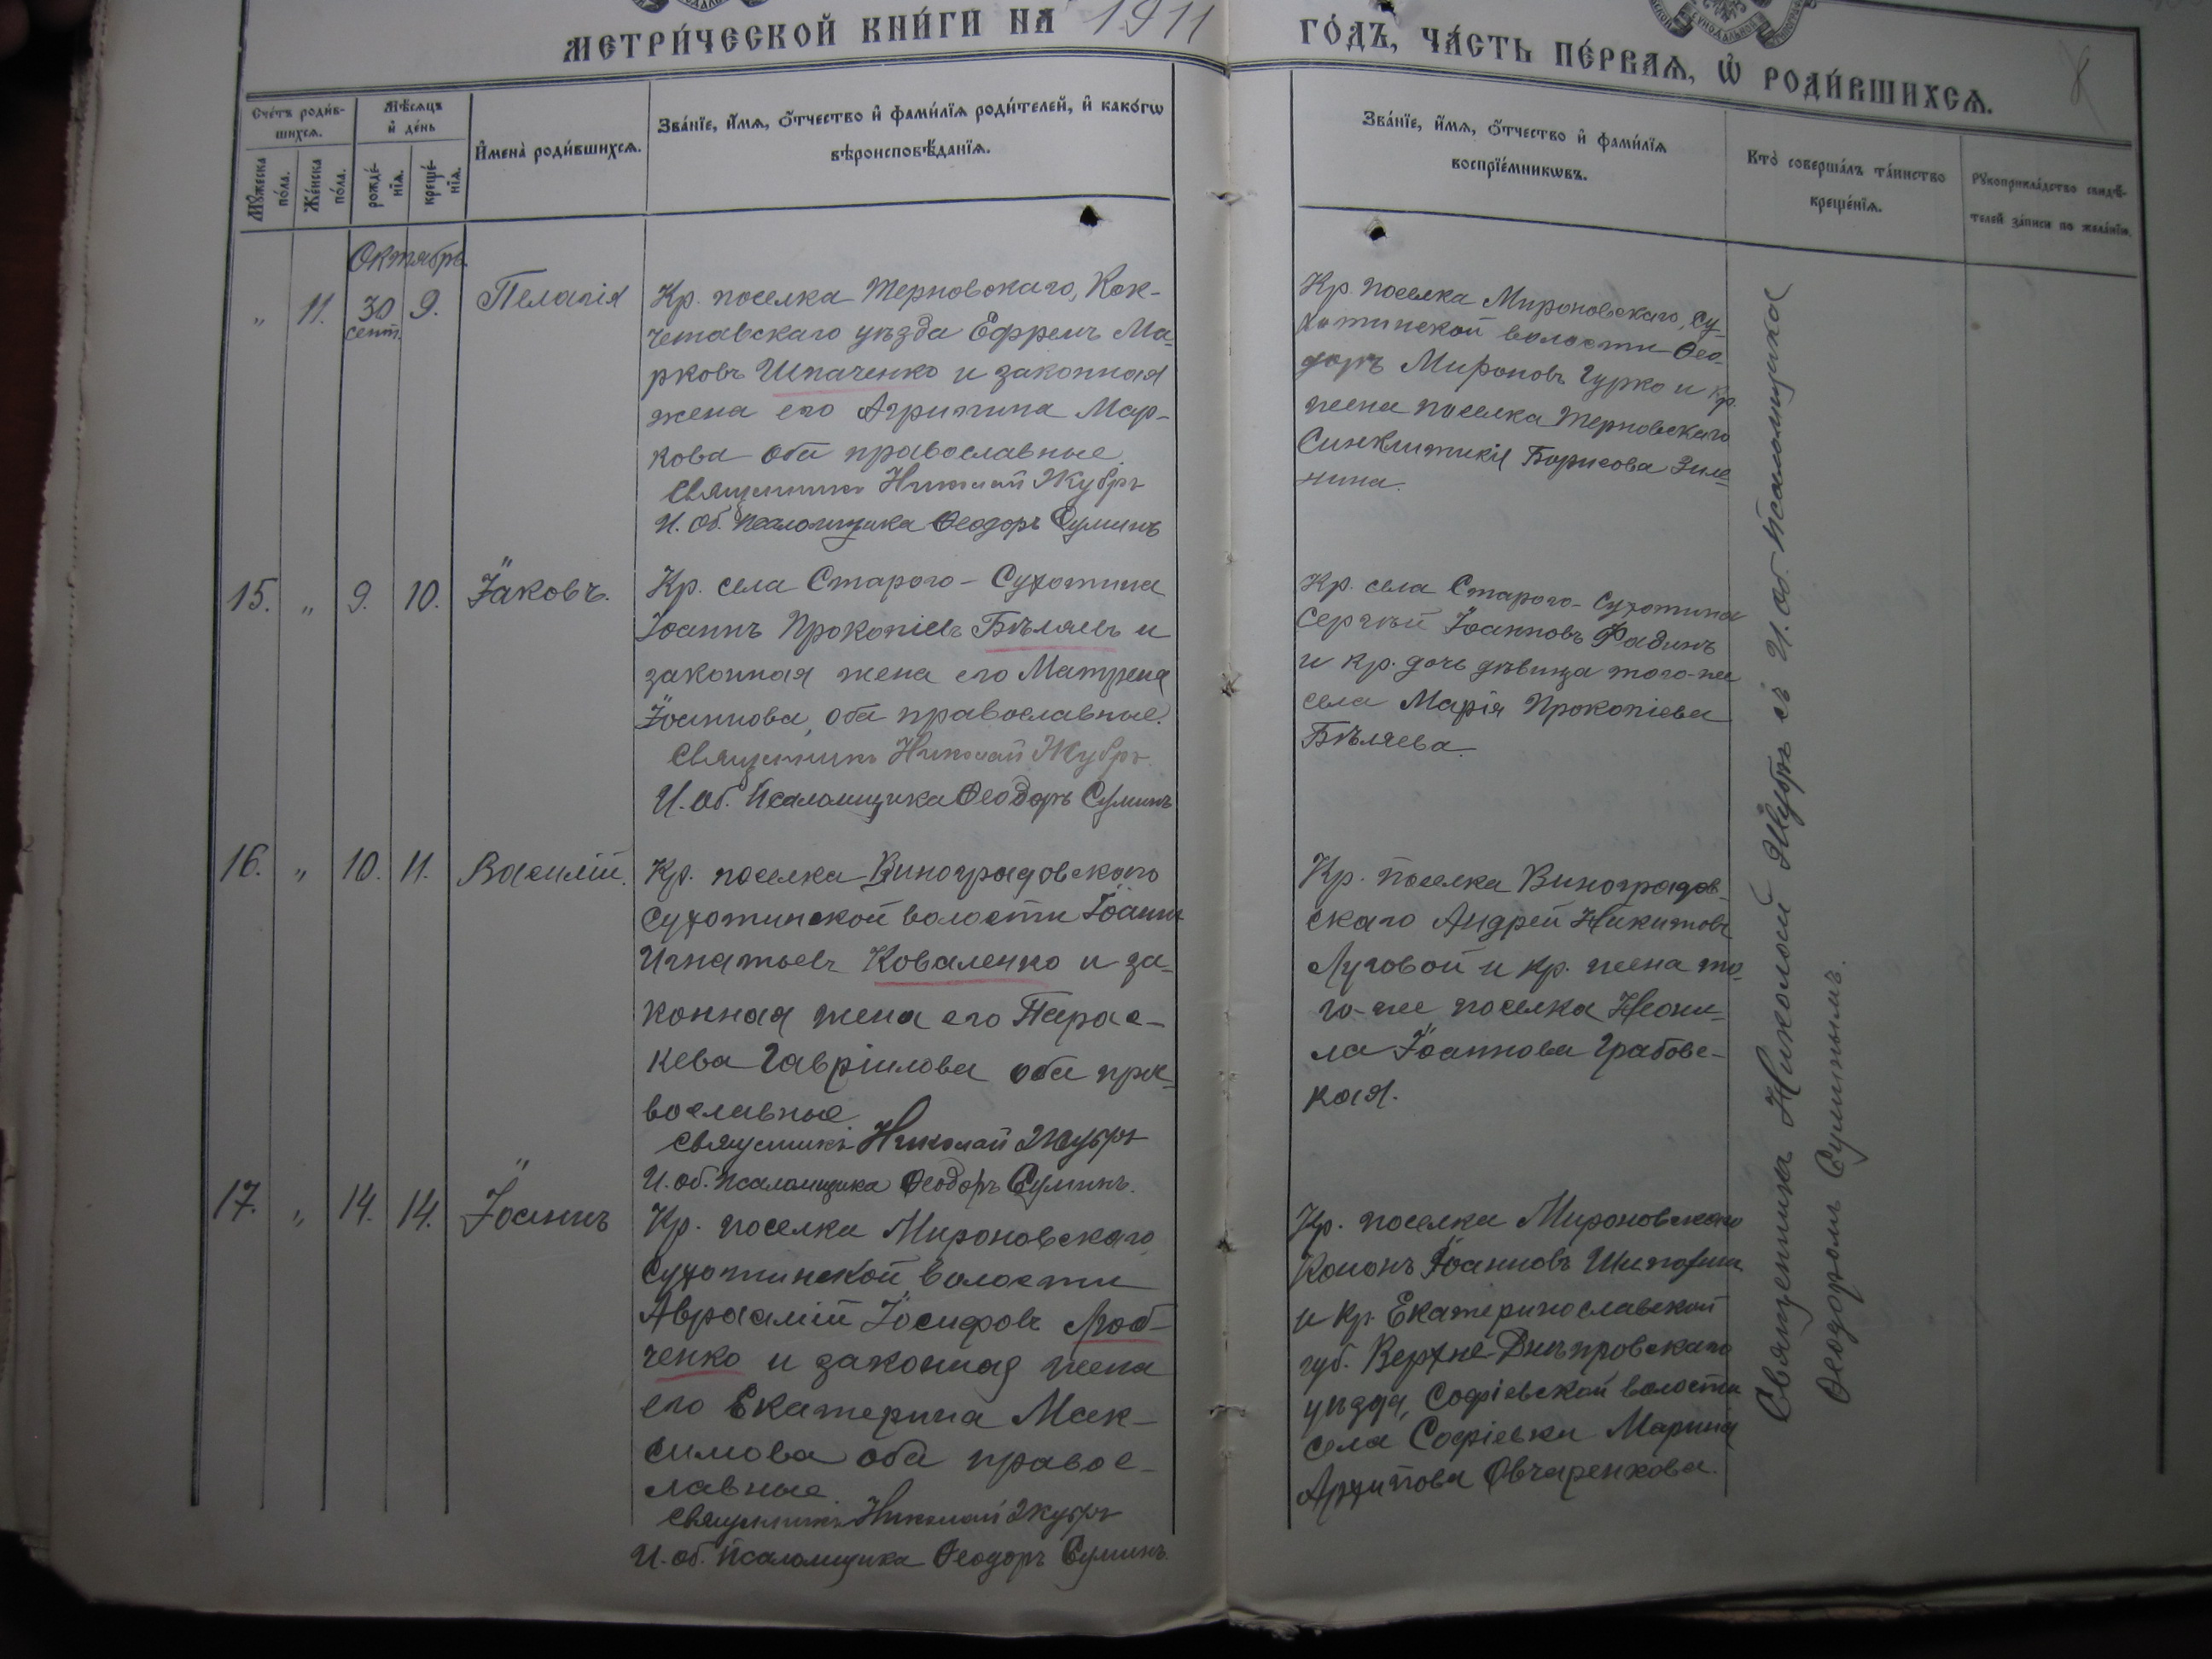 МЕТРИ́ЧЕСКОЙ КНИ́ГИ НА 1911
ГО́ДЪ, ЧА́СТЬ ПЕ́РВАѦ, Ѡ РОДИ́ВШИХСѦ.
Сче́тъ роди́в-
шихсѧ.
Мꙋ́жеска
по́ла.
Же́нска
по́ла.
Мѣ́сѧцъ
и де́нь
рожде́-
нїѧ.
креще́-
нїѧ.
Имена̀ роди́вшихсѧ.
Зва́нїе, и́мѧ, о́тчество и фами́лїѧ роди́телей, и како́гѡ
вѣроисповѣ́данїѧ.
Зва́нїе, и́мѧ, о́тчество и фами́лїѧ
воспрїе́мникѡвъ.
Кто̀ соверша́лъ та́инство
креще́нїѧ.
Рꙋкоприкла́дство свидѣ́-
телей за́писи по жела́нїю.
Октябрь
„ 11. 30 сент. 9. Пелагія
Кр. поселка Терновскаго, Кок-
четавскаго уѣзда Ефремъ Ма-
рковъ Шпаченко и законная
жена его Агрипина Мар-
кова оба православные.
Священникъ Николай Жубръ
И. об. псаломщика Ѳеодоръ Суминъ
Кр. поселка Мироновскаго, Су-
хотинской волости Ѳео-
доръ Мироновъ Гурко и кр.
жена поселка Терновскаго
Синклитикія Борисова Зиле-
нина.
15. „ 9. 10. Іаковъ.
Кр. села Старого-Сухотина
Іоаннъ Прокопіевъ Бѣляевъ и
законная жена его Матрена
Іоаннова, оба православные.
Священникъ Николай Жубръ.
И. об. Псаломщика Ѳеодоръ Суминъ
Кр. села Старого-Сухотина
Сергѣй Іоанновъ Фадинъ
и кр. дочь дѣвица того-же
села Марія Прокопіева
Бѣляева.
16. „ 10. 11. Василій.
Кр. поселка Виноградовскаго
Сухотинской волости Іоаннъ
Игнатьевъ Коваленко и за-
конная жена его Парас-
кева Гавріилова оба пра-
вославные.
Священникъ Николай Жубръ
И. об. псаломщика Ѳеодоръ Суминъ.
Кр. поселка Виноградов-
скаго Андрей Никитовъ
Луговой и кр. жена то-
го-же поселка Неони-
ла Іоаннова Грабовс-
кая.
17. „ 14. 14. Іоаннъ
Кр. поселка Мироновскаго
Сухотинской волости
Авраамій Іосифовъ Люб-
ченко и законная жена
его Екатерина Мак-
симова оба правос-
лавные.
Священникъ Николай Жубръ
И. об. Псаломщика Ѳеодоръ Суминъ.
Кр. поселка Мироновскаго
Кононъ Іоанновъ
и кр. Екатеринославской
губ. Верхне-Днѣпровскаго
уѣзда, Софіевской волости
села Софіевки Марина
Архипова Овчаренкова.
Священникъ Николай Жубръ съ И. об. Псаломщика
Ѳеодоромъ Суминымъ.